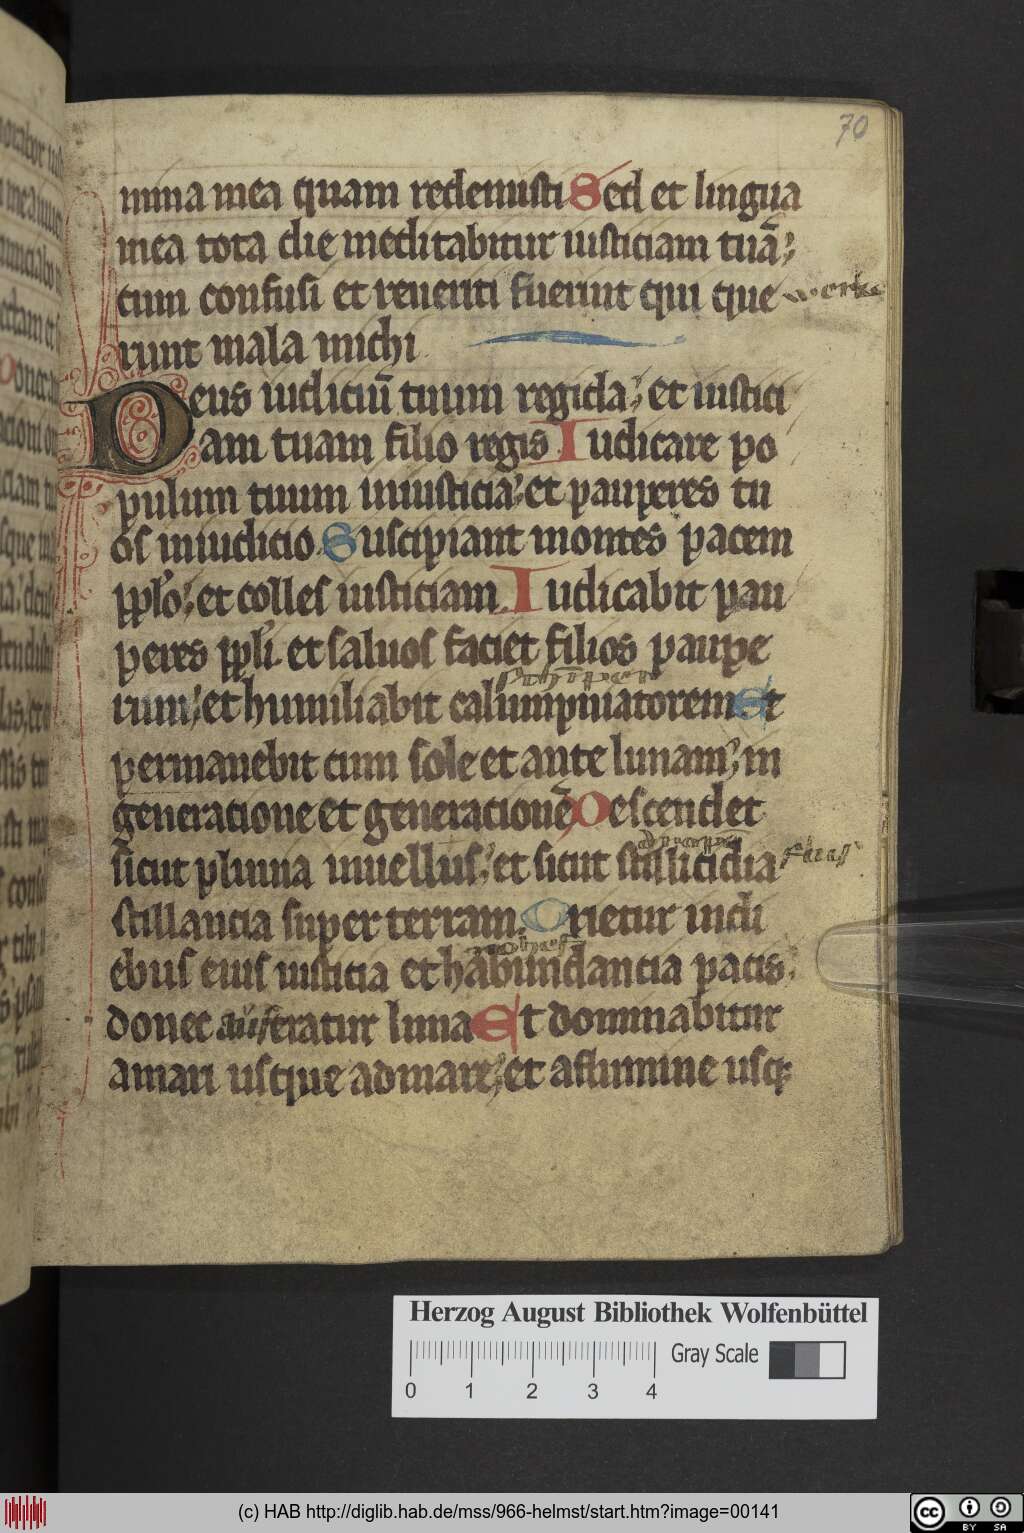 70
mma mea quam redemisti Sed et lingua
mea tota die meditabitur iusticiam tuā;
cum confusi et reueriti fuerint qui que
runt mala michi
Deus iudiciū tuum regi da; et iustici
am tuam filio regis Iudicare po
pulum tuum in iusticia; et pauperes tu
os in iudicio Suscipiant montes pacem
pplo; et colles iusticiam Iudicabit pau
peres ppli et saluos faciet filios paupe
rum; et humiliabit calumpniatorem Et
permanebit cum sole et ante lunam; in
generacione et generacionē Descendet
sicut pluuia in uellus; et sicut stillicidia
stillancia super terram Orietur in di
ebus eius iusticia et habundancia pacis;
donec auferatur luna Et dominabitur
a mari usque ad mare; et a flumine usq;
Herzog August Bibliothek Wolfenbüttel
Gray Scale
0 1 2 3 4
(c) HAB http://diglib.hab.de/mss/966-helmst/start.htm?image=00141
cc BY SA